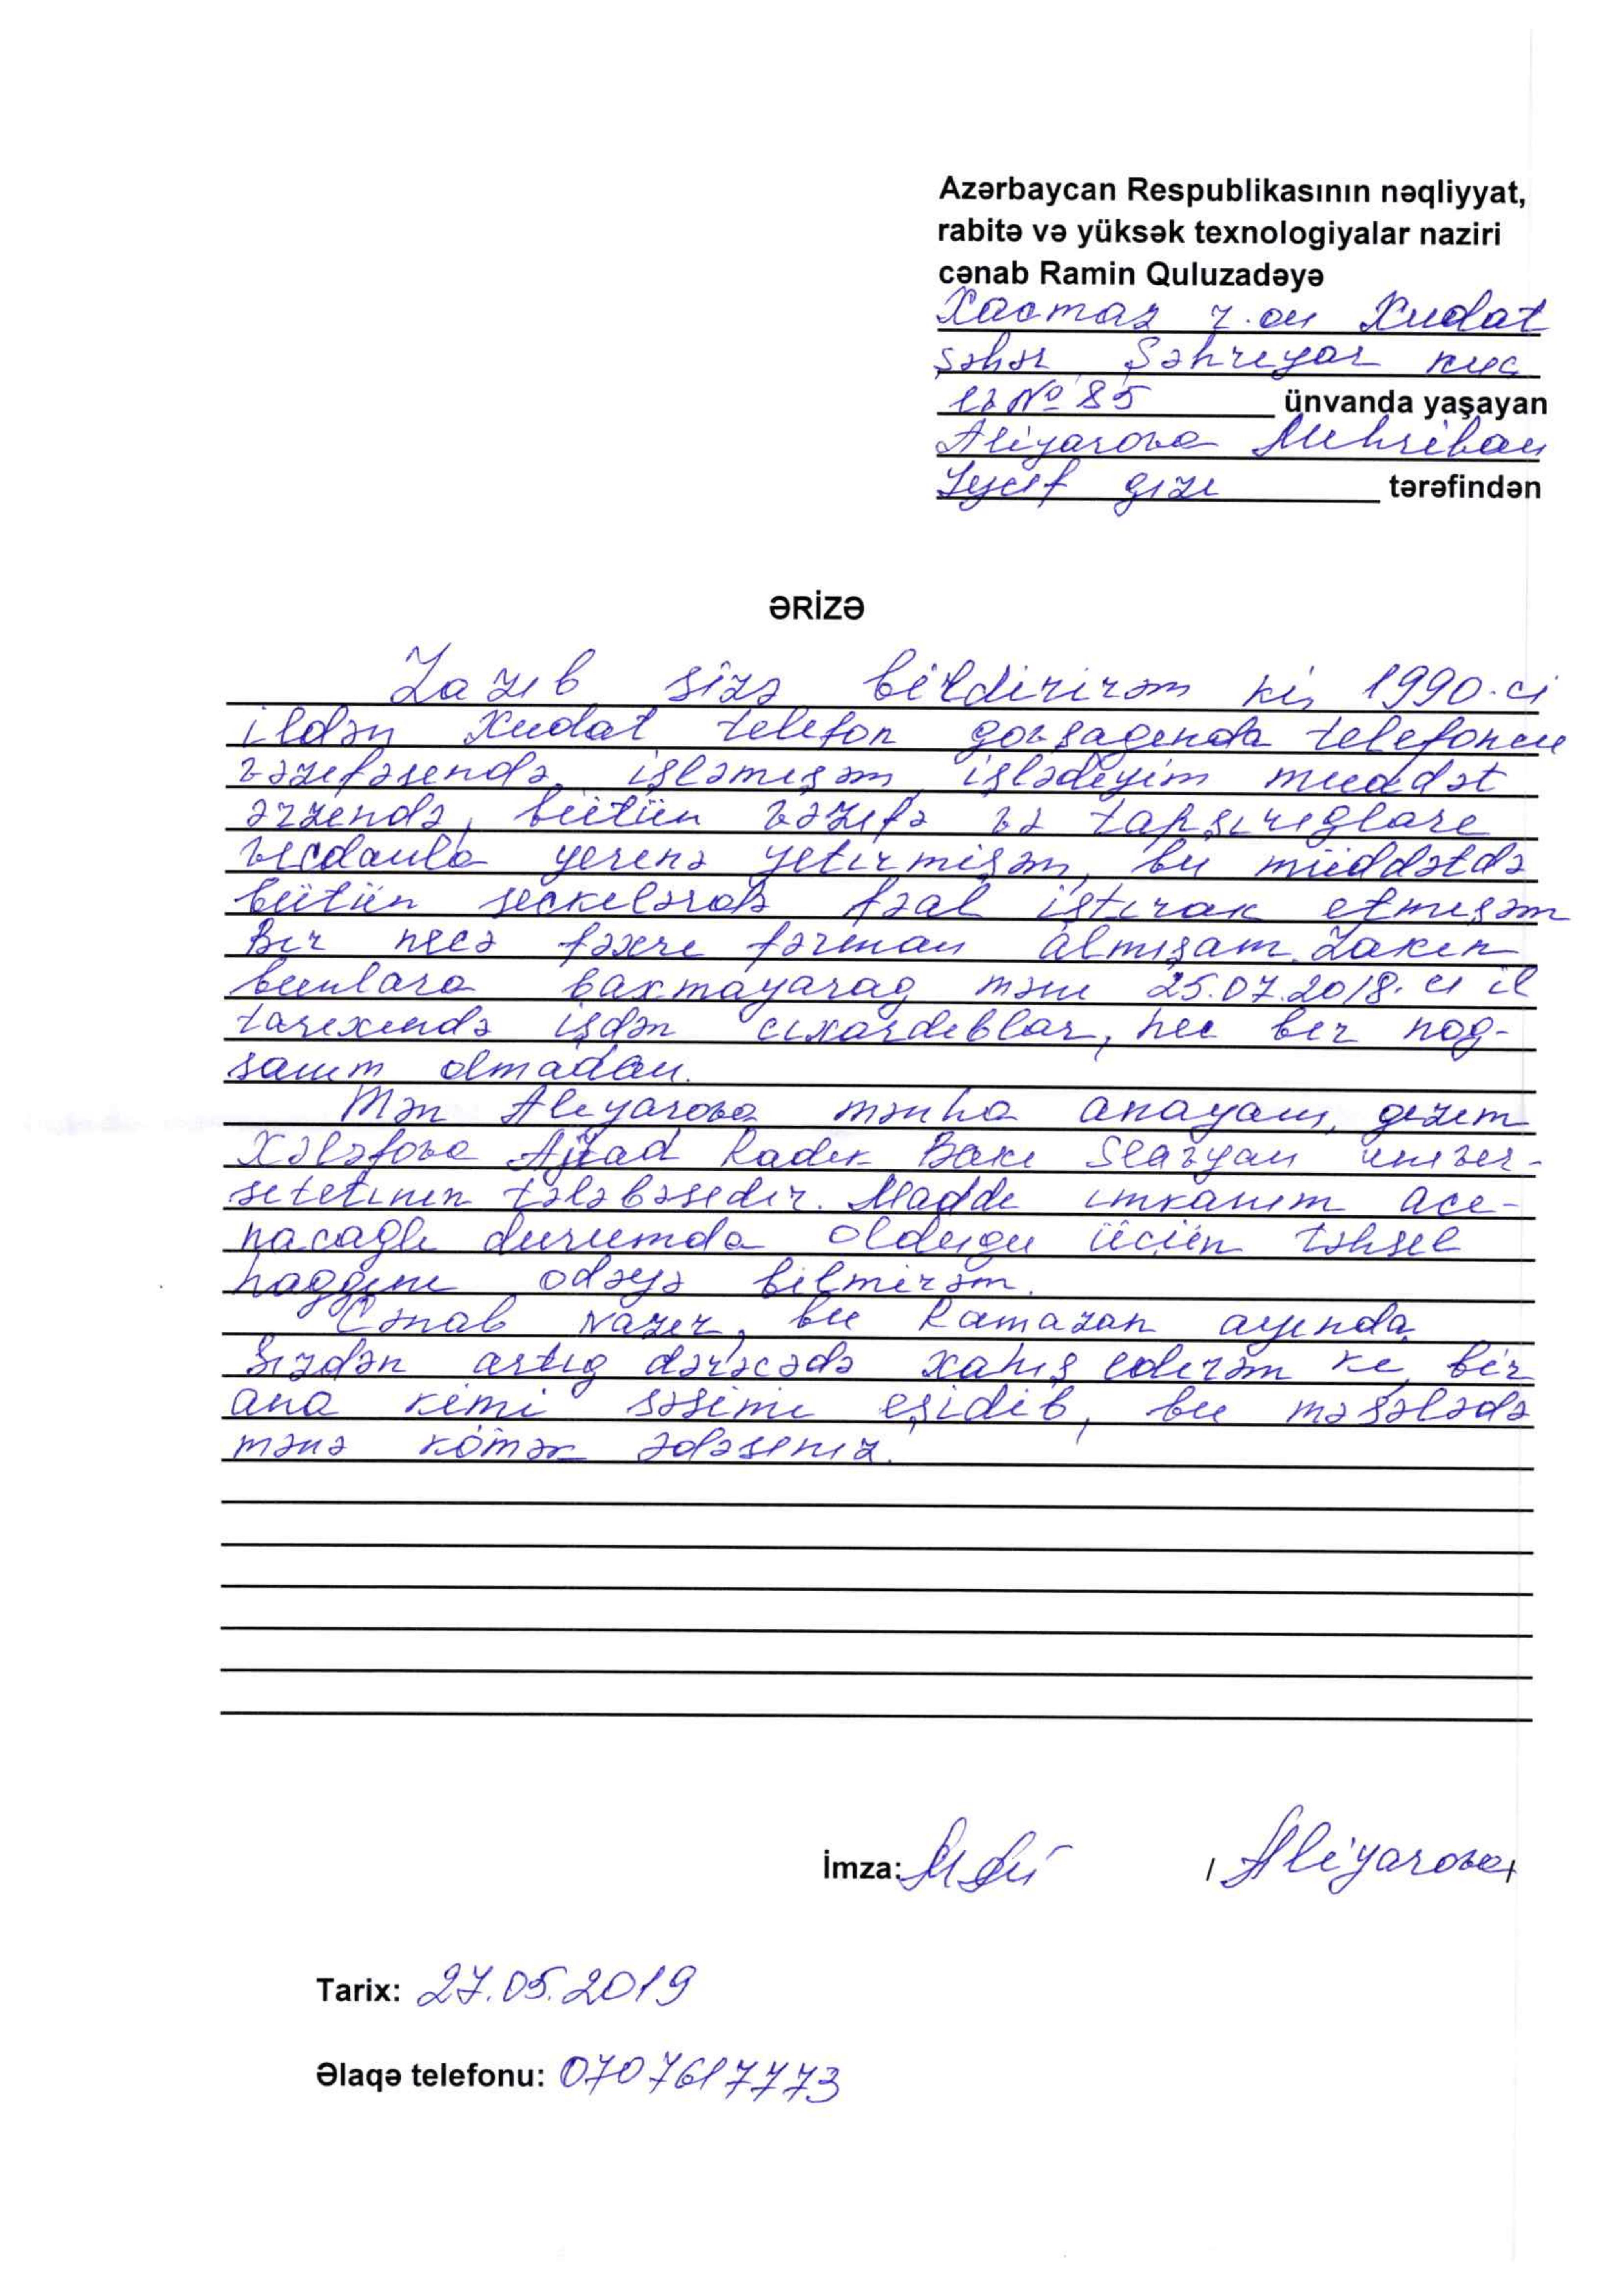 Azərbaycan Respublikasının nəqliyyat,
rabitə və yüksək texnologiyalar naziri
cənab Ramin Quluzadəyə
Xacmaz r.on Xudat
şəhər Şəhreyar kuç
ev № 85 ünvanda yaşayan
Aliyarova Mehriban
Yusif gızı tərəfindən
ƏRİZƏ
Yazıb sizə bildirirəm ki, 1990.ci
ildən Xudat telefon govşagenda telefoncu
vəzifəsendə işləmişəm, işlədeyim muddət
ərzendə, bütün vəzifə və tapşırıglare
vicdanla yerenə yetirmişəm, bu müddətdə
bütün seckelərdə fəal iştirak etmişəm
Bir necə fəxre fərman almışam. Lakin
bunlara baxmayarag məni 25.07.2018.ci il
tarixində işdən cıxardeblar, hec ber nog-
sanım olmadan.
Mən Aleyarova mənha anayam, gezem
Xələfova Radik Bakı Slavyan univer-
setetının tələbəsedir. Madde imkanım ace-
nacagle durumda oldugu ücün təhsel
haggını odəyə bilmirəm.
Cənab Nazer, bu Ramazan ayında
Sizdən artıg dərəcədə xahış ederəm ke, bir
ana kimi səsimi eşidib, bu məsələdə
mənə kömək ədəseniz.
İmza: / Aliyarova/
Tarix: 27.05.2019
Əlaqə telefonu: 0707617773